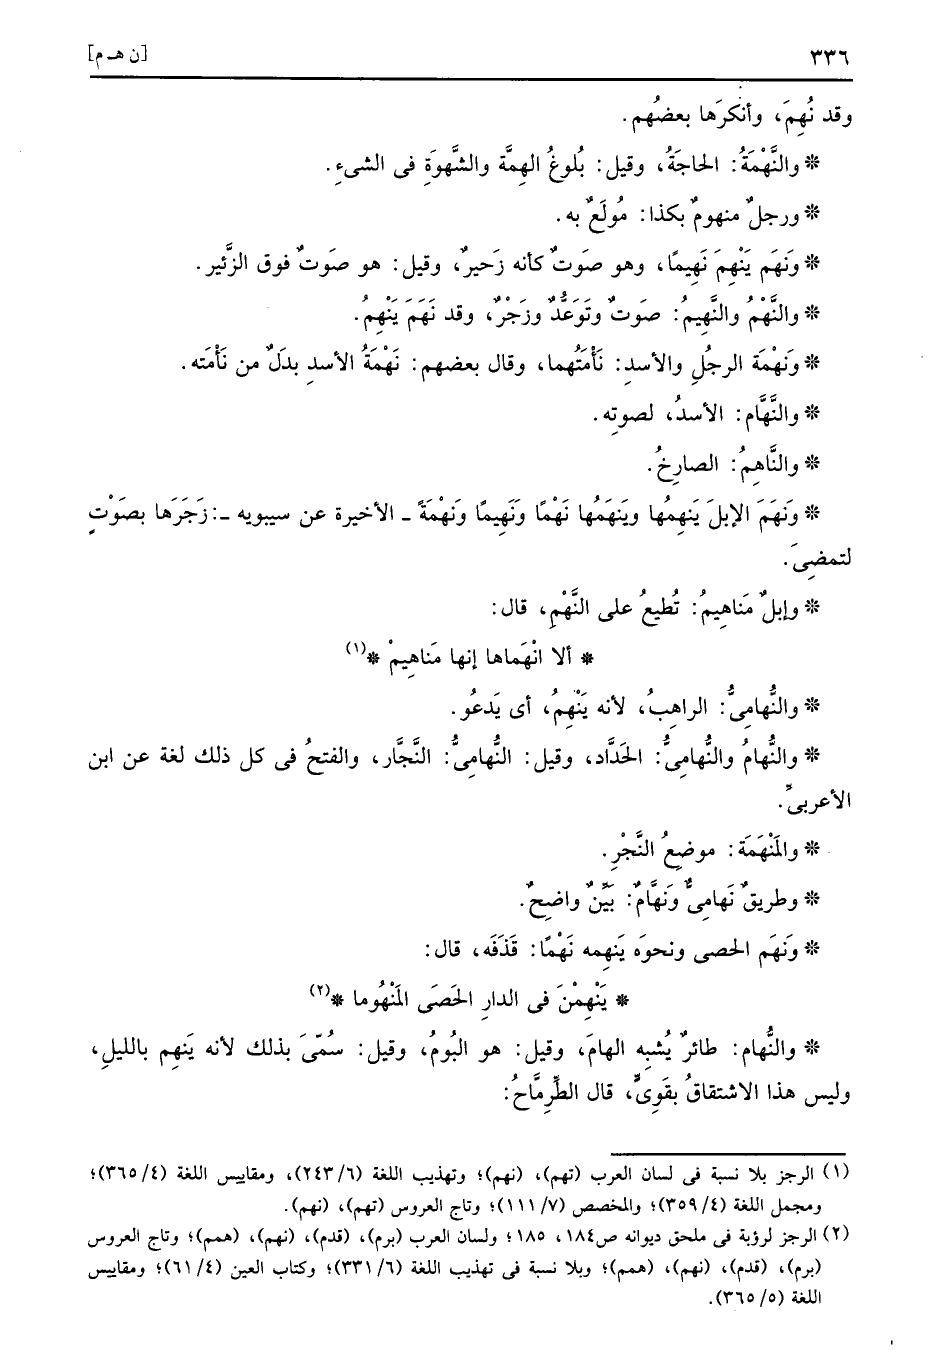 ٣٣٦ [ن هـ م]
وقد نُهِمَ، وأنكرَها بعضُهم.
* والنَّهْمَةُ: الحاجَةُ، وقيل: بُلوغُ الهِمَّة والشَّهوَةِ فى الشىءِ.
* ورجلٌ منهومٌ بكذا: مُولَعٌ به.
* ونَهَم يَنْهِمَ نَهِيمًا، وهو صَوتٌ كأنه زَحيرٌ، وقيل: هو صَوتٌ فوق الزَّئير.
* والنَّهْمُ والنَّهِيمُ: صَوتٌ وتَوَعُّدٌ وزَجْرٌ، وقد نَهَمَ يَنْهِمُ.
* ونَهْمَة الرجُلِ والأسدِ: نَأْمَتُهما، وقال بعضهم: نَهْمَةُ الأسدِ بدَلٌ من نَأْمَته.
* والنَّهَّام: الأسدُ، لصوتِه.
* والنَّاهِمُ: الصارِخُ.
* ونَهَمَ الإبلَ يَنهِمُها ويَنهَمُها نَهْمًا ونَهِيمًا ونَهْمَةً ـ الأخيرة عن سيبويه ـ: زَجَرَها بصَوْتٍ
لتمضِىَ.
* وإبلٌ مَناهِيمُ: تُطيعُ على النَّهْمِ، قال:
* ألا انْهَماها إنها مَناهِيمْ *(١)
* والنُّهامِىُّ: الراهِبُ، لأنه يَنْهِمُ، أى يَدعُو.
* والنُّهامُ والنُّهامِىُّ: الحَدَّاد، وقيل: النُّهامِىُّ: النَّجَّار، والفتحُ فى كل ذلك لغة عن ابن
الأعرابىِّ.
* والمَنْهَمَة: موضِعُ النَّجْرِ.
* وطريقٌ نَهامِىٌّ ونَهَّامٌ: بَيِّنٌ واضِحٌ.
* ونَهَم الحصى ونحوَه يَنهِمه نَهْمًا: قَذَفَه، قال:
* يَنْهِمْنَ فى الدارِ الحَصَى المَنْهُوما *(٢)
* والنُّهام: طائرٌ يُشبِه الهامَ، وقيل: هو البُومُ، وقيل: سُمّىَ بذلك لأنه يَنهِم بالليلِ،
وليس هذا الاشتقاقُ بقَوِىٍّ، قال الطِّرِمَّاحُ:
(١) الرجز بلا نسبة فى لسان العرب (تهم)، (نهم)؛ وتهذيب اللغة (٦/ ٢٤٣)، ومقاييس اللغة (٤/ ٣٦٥)؛
ومجمل اللغة (٤/ ٣٥٩)؛ والمخصص (٧/ ١١١)؛ وتاج العروس (تهم)، (نهم).
(٢) الرجز لرؤبة فى ملحق ديوانه ص١٨٤، ١٨٥؛ ولسان العرب (برم)، (قدم)، (نهم)، (همم)؛ وتاج العروس
(برم)، (قدم)، (نهم)، (همم)؛ وبلا نسبة فى تهذيب اللغة (٦/ ٣٣١)؛ وكتاب العين (٤/ ٦١)؛ ومقاييس
اللغة (٥/ ٣٦٥).